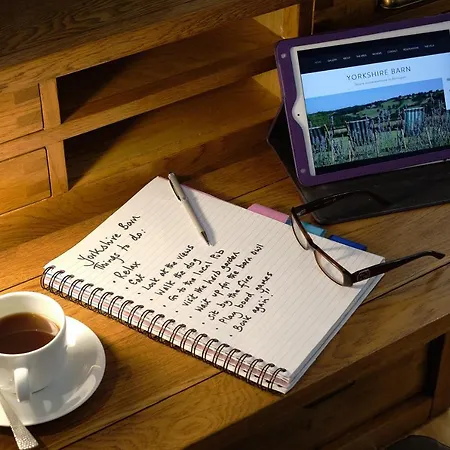 YORKSHIRE BARN
Yorkshire Barn
Things to do:
• Relax
• Eat
• Look at the views
• Walk the dog
• Go to the local Pub
• Visit the herb garden
• Wait up for the barn owl
• Sit by the fire
• Play board games
• Book again!!